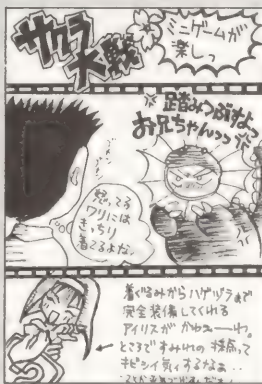 サクラ大戦
ミニゲームが
楽しっ
足踏みつぶすよっ
お兄ちゃんっっ
怒ってる
ワリには
きっちり
着てるよな。
着ぐるみからハゲヅラまで
完全装備してくれる
アイリスが かわえーわ。
ところですみれの 採点って
キビシイ気ィするなぁ‥